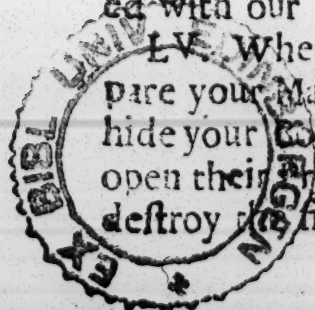 ed with our
LV. Whe
pare your Ma
hide your
open their
deſtroy the
EX BIBL UNIV